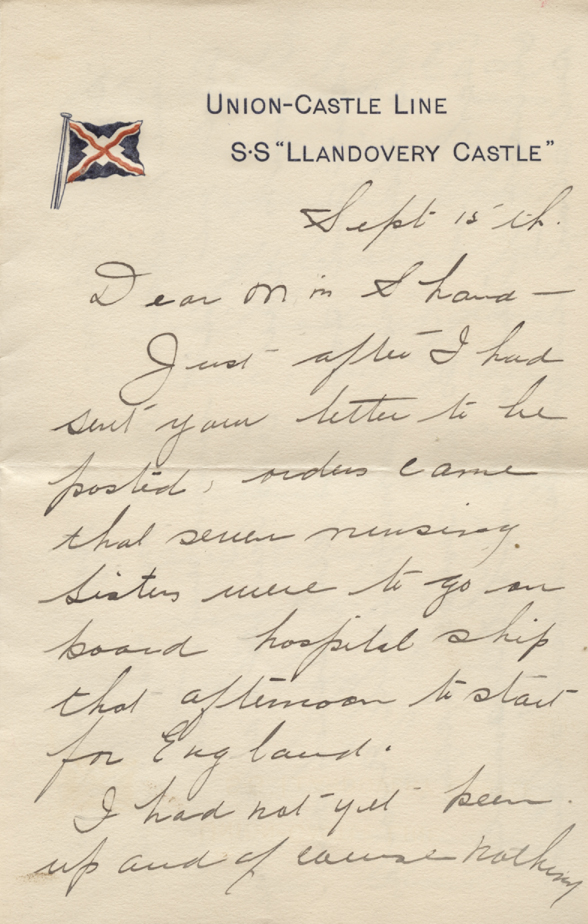 UNION-CASTLE LINE
S·S "LLANDOVERY CASTLE"
Sept 15th.
Dear Miss Shand —
Just after I had
sent your letter to be
posted, orders came
that seven nursing
sisters were to go on
board hospital ship
that afternoon to start
for England.
I had not yet been
up and of course nothing